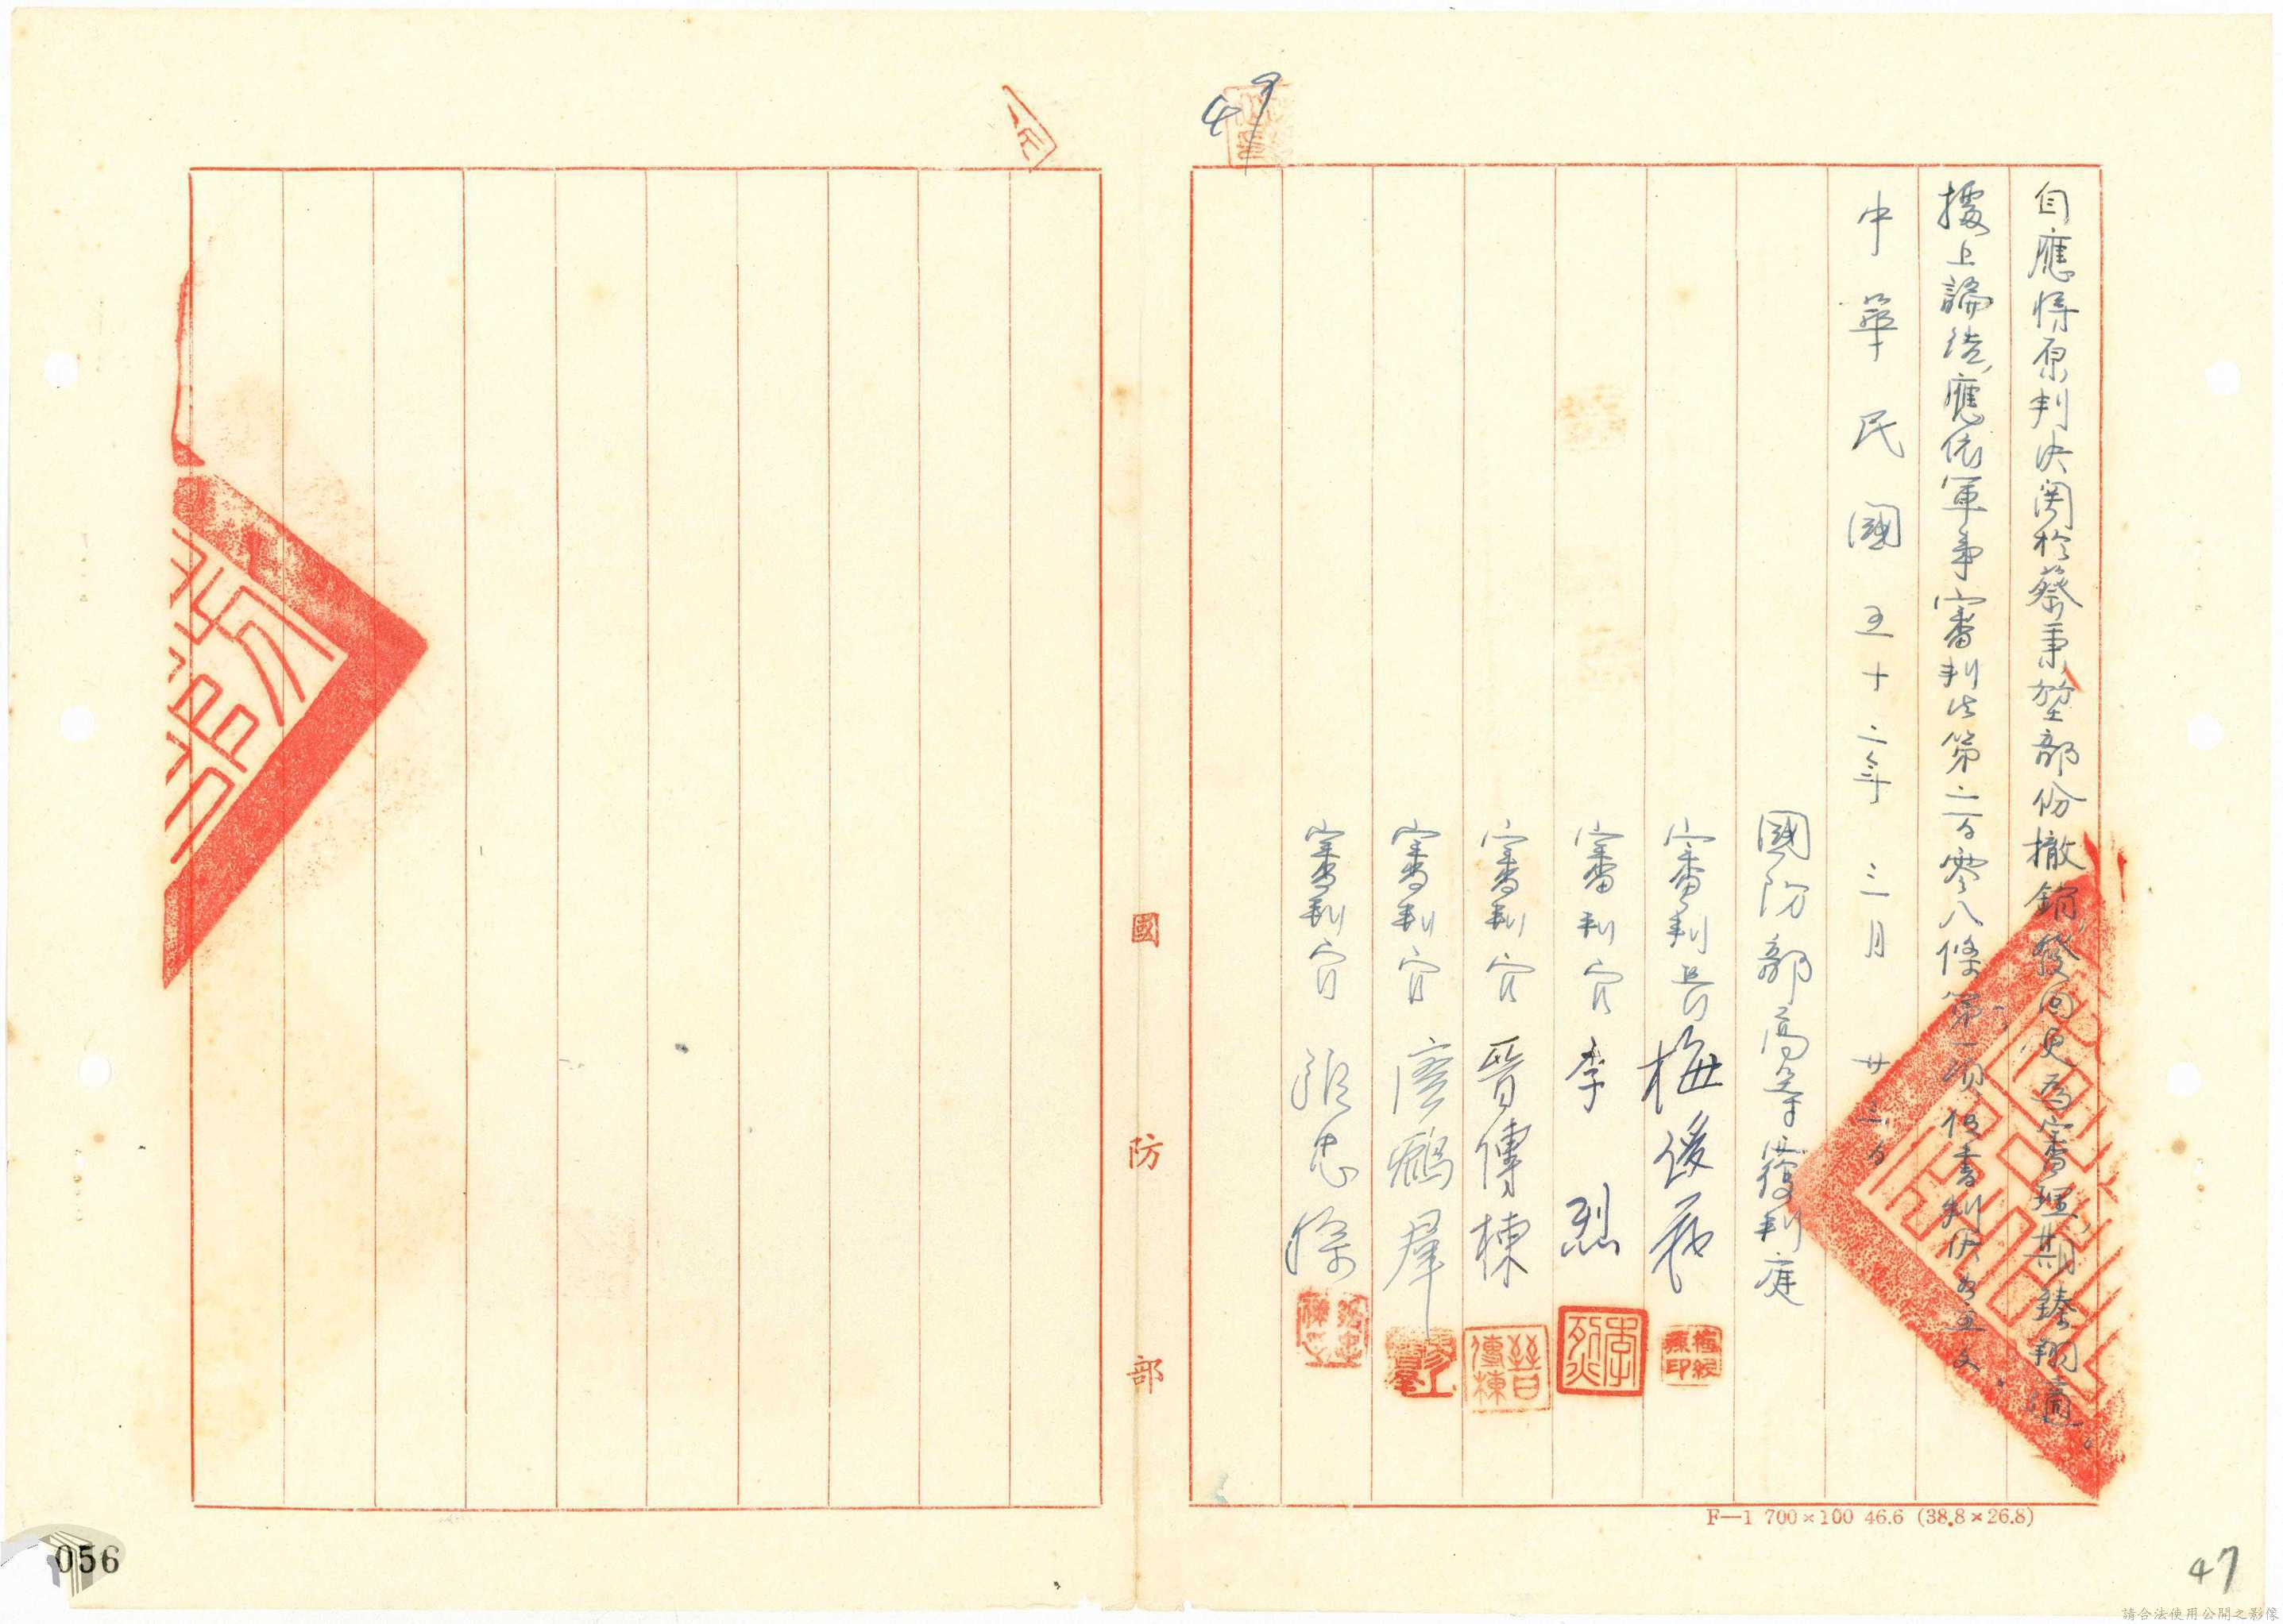 自應將原判決關於蔡秉堃部份撤銷，發回更為審理，期臻翔適。
據上論結，應依軍事審判法第二百零八條第一項但書判決如主文
中華民國五十二年三月廿三日
國防部高等覆判庭
審判長梅綬蓀
審判官李烈
審判官晉傳棟
審判官廖鶴羣
審判官張忠滌
國防部
F—1 700×100 46.6 (38.8×26.8)
49
47
056
請合法使用公開之影像